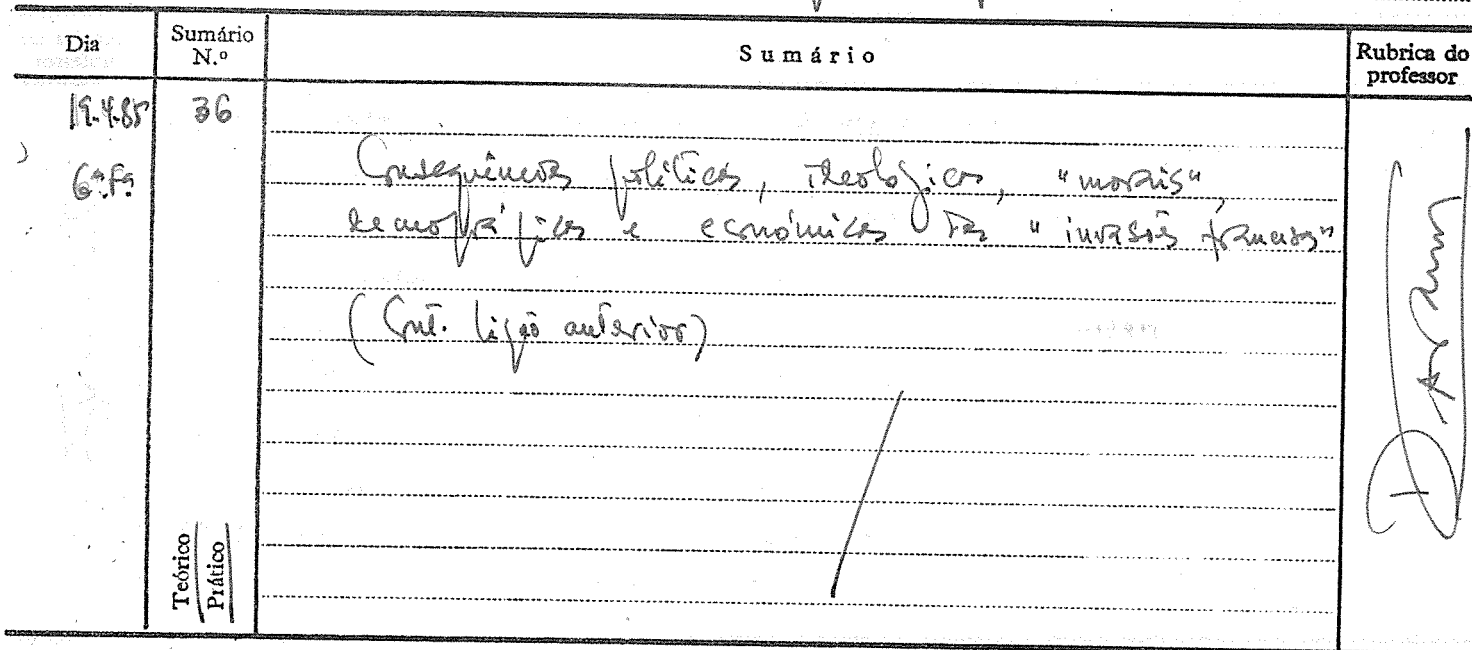 Dia
Sumário N.º
Sumário
Rubrica do professor
19.4.85
36
6ª.Fª
Consequências políticas, ideológicas, "morais",
demográficas e económicas das "invasões francesas"
(Cont. lição anterior)
Teórico
Prático